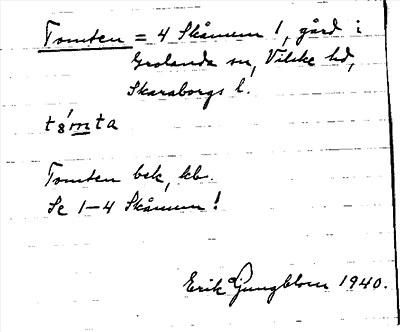 Tomten = 4 Skåmum 1, gård i
Grolanda sn, Vilske hd,
Skaraborgs l.
t8́mta
Tomten bek, kb.
Se 1-4 Skåmum!
Erik Ljungblom 1940.